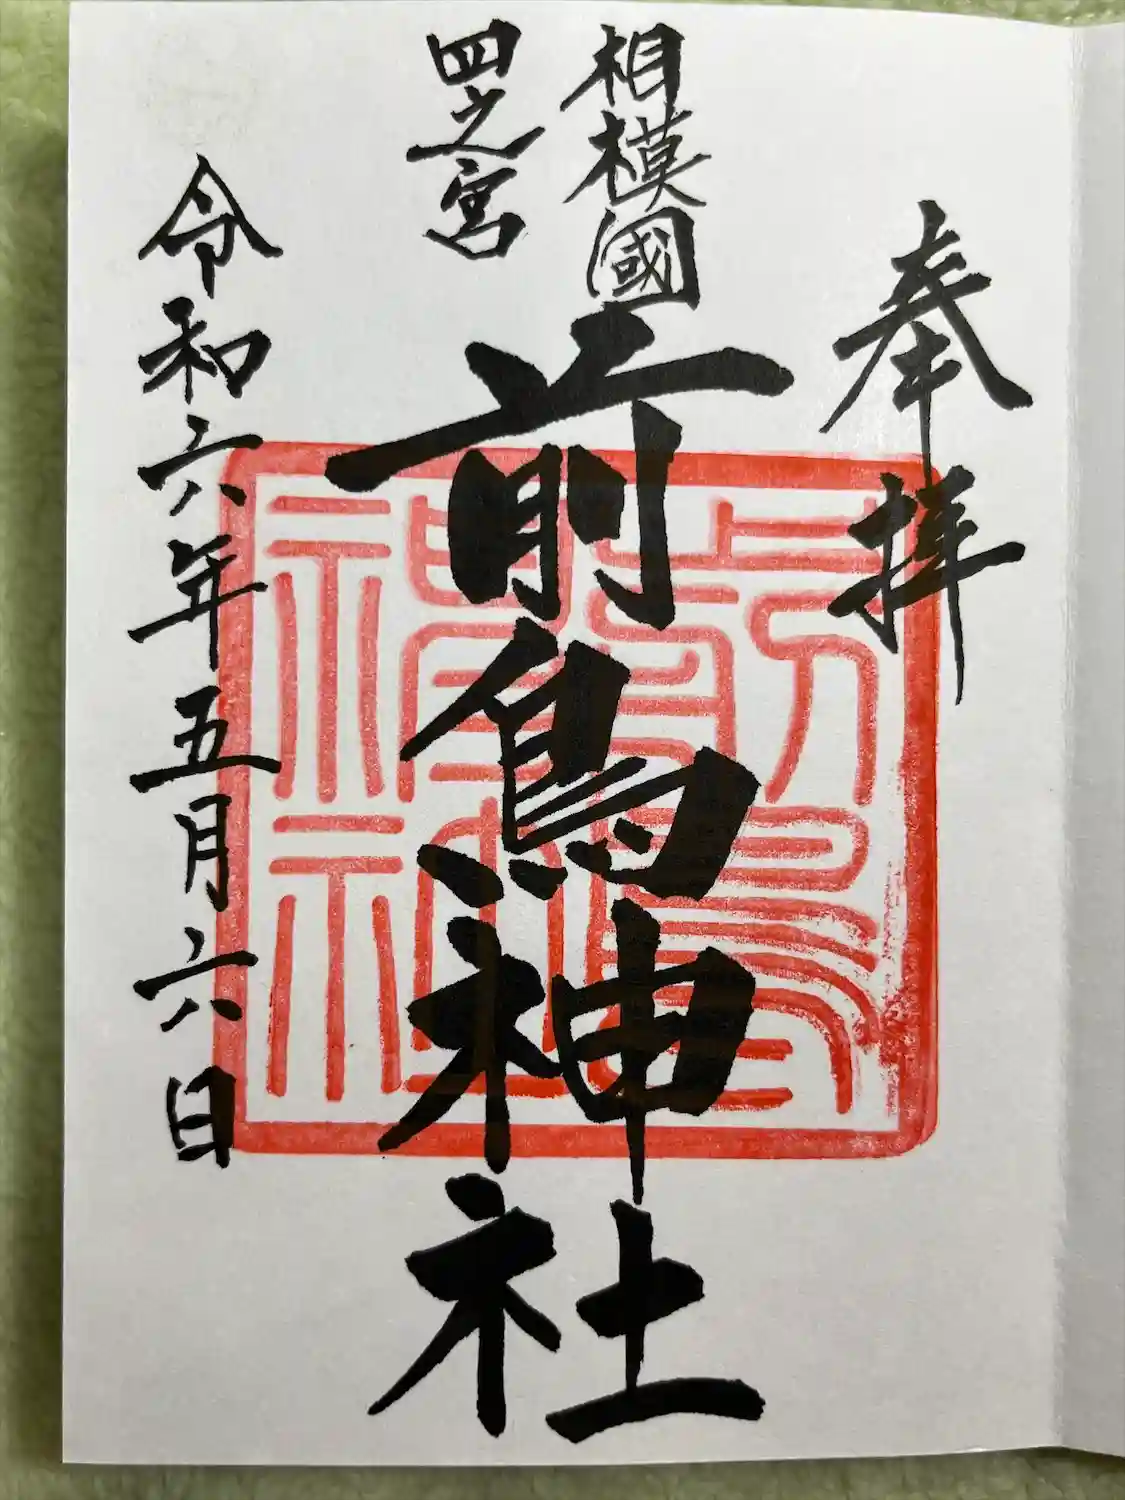 奉拝
相模國
四之宮
前鳥神社
令和六年五月六日
前鳥
神社